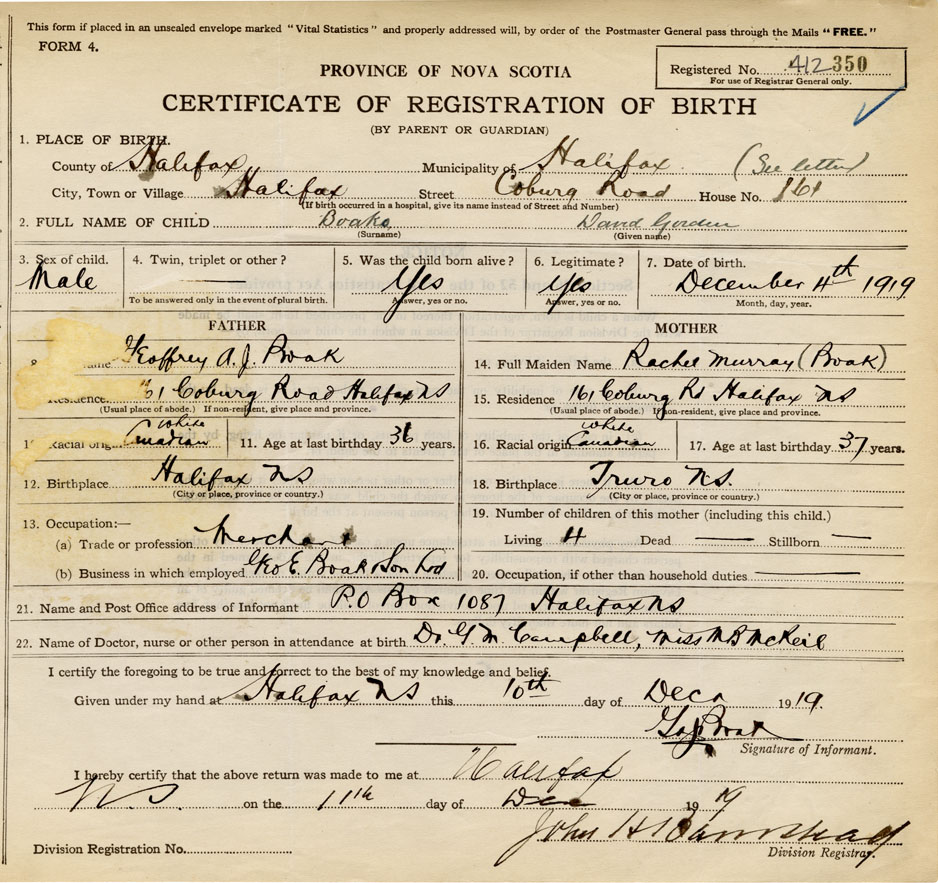 This form if placed in an unsealed envelope marked "Vital Statistics" and properly addressed will, by order of the Postmaster General pass through the Mails "FREE."
FORM 4.
Registered No. 412350
For use of Registrar General only.
PROVINCE OF NOVA SCOTIA
CERTIFICATE OF REGISTRATION OF BIRTH
(BY PARENT OR GUARDIAN)
1. PLACE OF BIRTH.
County of Halifax Municipality of Halifax (See letter)
City, Town or Village Halifax Street Coburg Road House No. 161
(If birth occurred in a hospital, give its name instead of Street and Number)
2. FULL NAME OF CHILD Boak David Gordon
(Surname) (Given name)
3. Sex of child. 4. Twin, triplet or other? 5. Was the child born alive? 6. Legitimate? 7. Date of birth.
Male Yes Yes December 4th 1919
To be answered only in the event of plural birth. Answer, yes or no. Answer, yes or no. Month, day, year.
FATHER
Geoffrey A. J. Boak
Residence 161 Coburg Road Halifax NS
(Usual place of abode.) If non-resident, give place and province.
White
Racial origin Canadian 11. Age at last birthday 36 years.
12. Birthplace Halifax NS
(City or place, province or country.)
13. Occupation:—
(a) Trade or profession Merchant
(b) Business in which employed Geo E. Boak & Son Ltd
MOTHER
14. Full Maiden Name Rachel Murray (Boak)
15. Residence 161 Coburg Rd Halifax NS
(Usual place of abode.) If non-resident, give place and province.
White
16. Racial origin Canadian 17. Age at last birthday 37 years.
18. Birthplace Truro N.S.
(City or place, province or country.)
19. Number of children of this mother (including this child.)
Living 4 Dead — Stillborn —
20. Occupation, if other than household duties —
21. Name and Post Office address of Informant P.O Box 1087 Halifax NS
22. Name of Doctor, nurse or other person in attendance at birth Dr. G. M. Campbell, Miss M B McKeil
I certify the foregoing to be true and correct to the best of my knowledge and belief.
Given under my hand at Halifax NS this 10th day of Dec 1919.
Boak
Signature of Informant.
I hereby certify that the above return was made to me at Halifax
N.S. on the 11th day of Dec 1919
John H
Division Registrar.
Division Registration No.